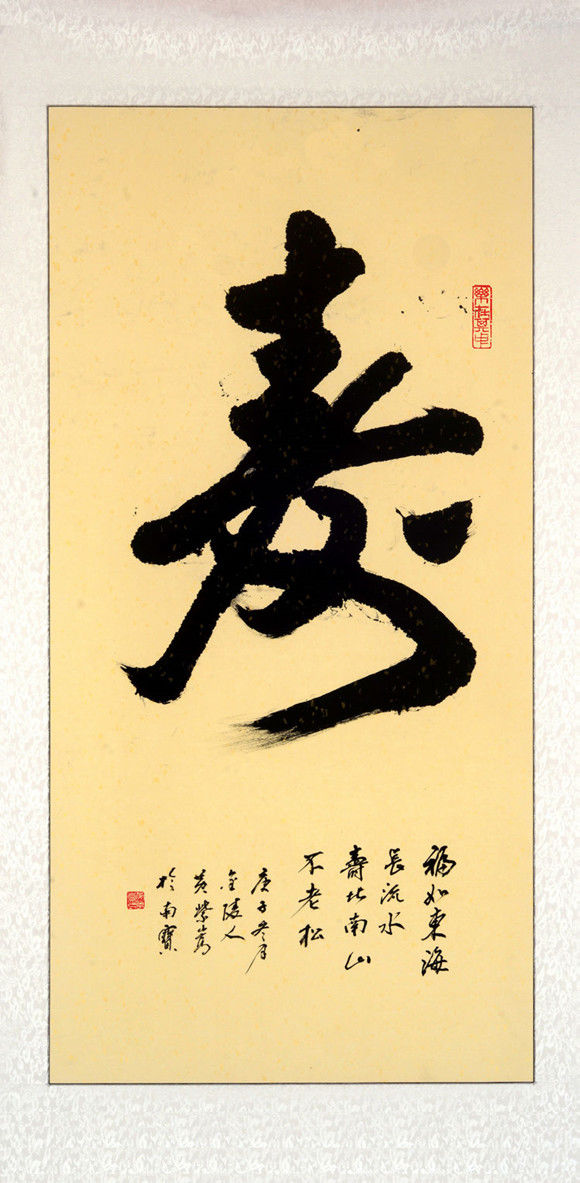 寿
福如東海
長流水
壽比南山
不老松
庚子冬月
金陵人
黄紫嵩
於南寶